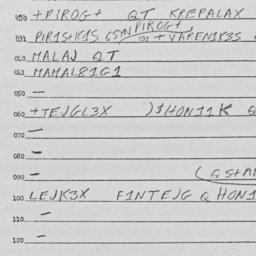 +PIROG+ QT KREPALAX
PIROG+,
PIR1S+K1S GSMN 032 + VAREN1K3S
040 MALAJ QT
043 MAMAL81G1
050 —
060 +TEJGL3X )1HON11K Q
070 —
080 —
090 — (QS+A
100 LEJK3X F1NTEJG Q HON1
110 —
120 —